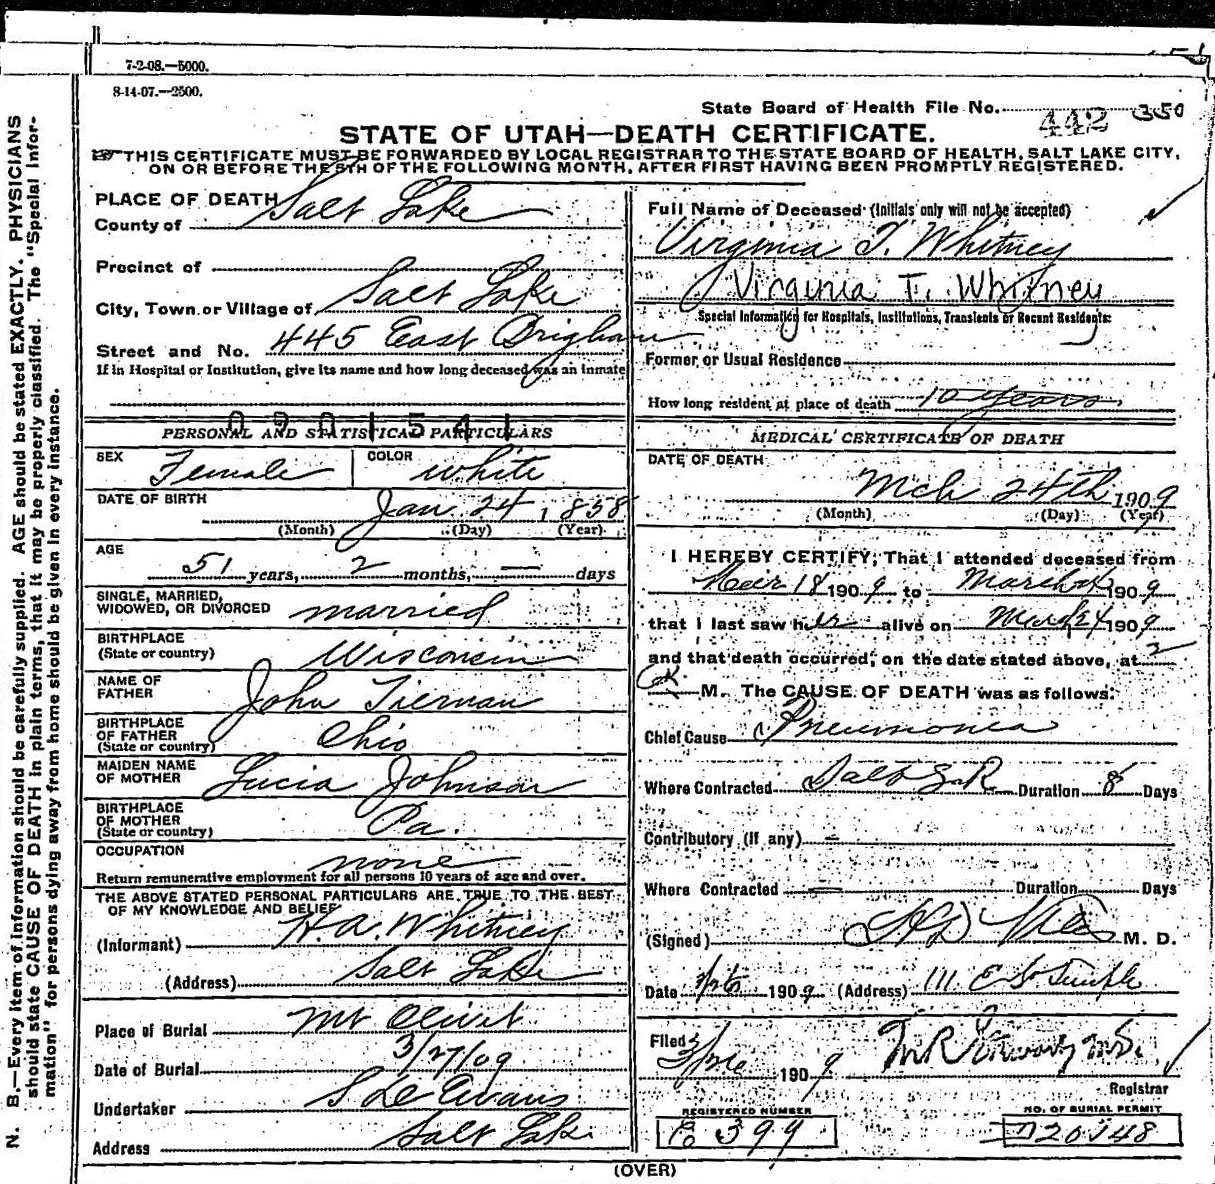 7-2-08.—5000.
8-14-07.—2500.
State Board of Health File No. 442 350
STATE OF UTAH—DEATH CERTIFICATE.
THIS CERTIFICATE MUST BE FORWARDED BY LOCAL REGISTRAR TO THE STATE BOARD OF HEALTH, SALT LAKE CITY,
ON OR BEFORE THE 5TH OF THE FOLLOWING MONTH, AFTER FIRST HAVING BEEN PROMPTLY REGISTERED.
N. B.—Every item of information should be carefully supplied. AGE should be stated EXACTLY. PHYSICIANS
should state CAUSE OF DEATH in plain terms, that it may be properly classified. The "Special Infor-
mation" for persons dying away from home should be given in every instance.
PLACE OF DEATH
County of Salt Lake
Precinct of
City, Town or Village of Salt Lake
Street and No. 445 East Brigham
If in Hospital or Institution, give its name and how long deceased was an inmate
PERSONAL AND STATISTICAL PARTICULARS
SEX Female COLOR white
DATE OF BIRTH Jan 24, 1858
(Month) (Day) (Year)
AGE
51 years, 2 months, — days
SINGLE, MARRIED,
WIDOWED, OR DIVORCED married
BIRTHPLACE
(State or country) Wisconsin
NAME OF
FATHER John Tiernan
BIRTHPLACE
OF FATHER
(State or country) Ohio
MAIDEN NAME
OF MOTHER Lucia Johnson
BIRTHPLACE
OF MOTHER
(State or country) Pa.
OCCUPATION none
Return remunerative employment for all persons 10 years of age and over.
THE ABOVE STATED PERSONAL PARTICULARS ARE TRUE TO THE BEST
OF MY KNOWLEDGE AND BELIEF
(Informant) H. A. Whitney
(Address) Salt Lake
Place of Burial Mt Olivet
Date of Burial 3/27/09
Undertaker S De Evans
Address Salt Lake
Full Name of Deceased (Initials only will not be accepted)
Virginia T. Whitney
Virginia T. Whitney
Special Information for Hospitals, Institutions, Transients or Recent Residents:
Former or Usual Residence
How long resident at place of death 10 years.
MEDICAL CERTIFICATE OF DEATH
DATE OF DEATH
Mch 24th 1909
(Month) (Day) (Year)
I HEREBY CERTIFY, That I attended deceased from
18 1909 to March 24 1909
that I last saw her alive on March 24 1909
and that death occurred, on the date stated above, at 2
M. The CAUSE OF DEATH was as follows:
Chief Cause Pneumonia
Where Contracted Salt Lake Duration 8 Days
Contributory (if any) —
Where Contracted — Duration Days
(Signed) M. D.
Date 1909 (Address) 111 E So Temple
Filed 1909
Registrar
REGISTERED NUMBER
399
NO. OF BURIAL PERMIT
20148
(OVER)